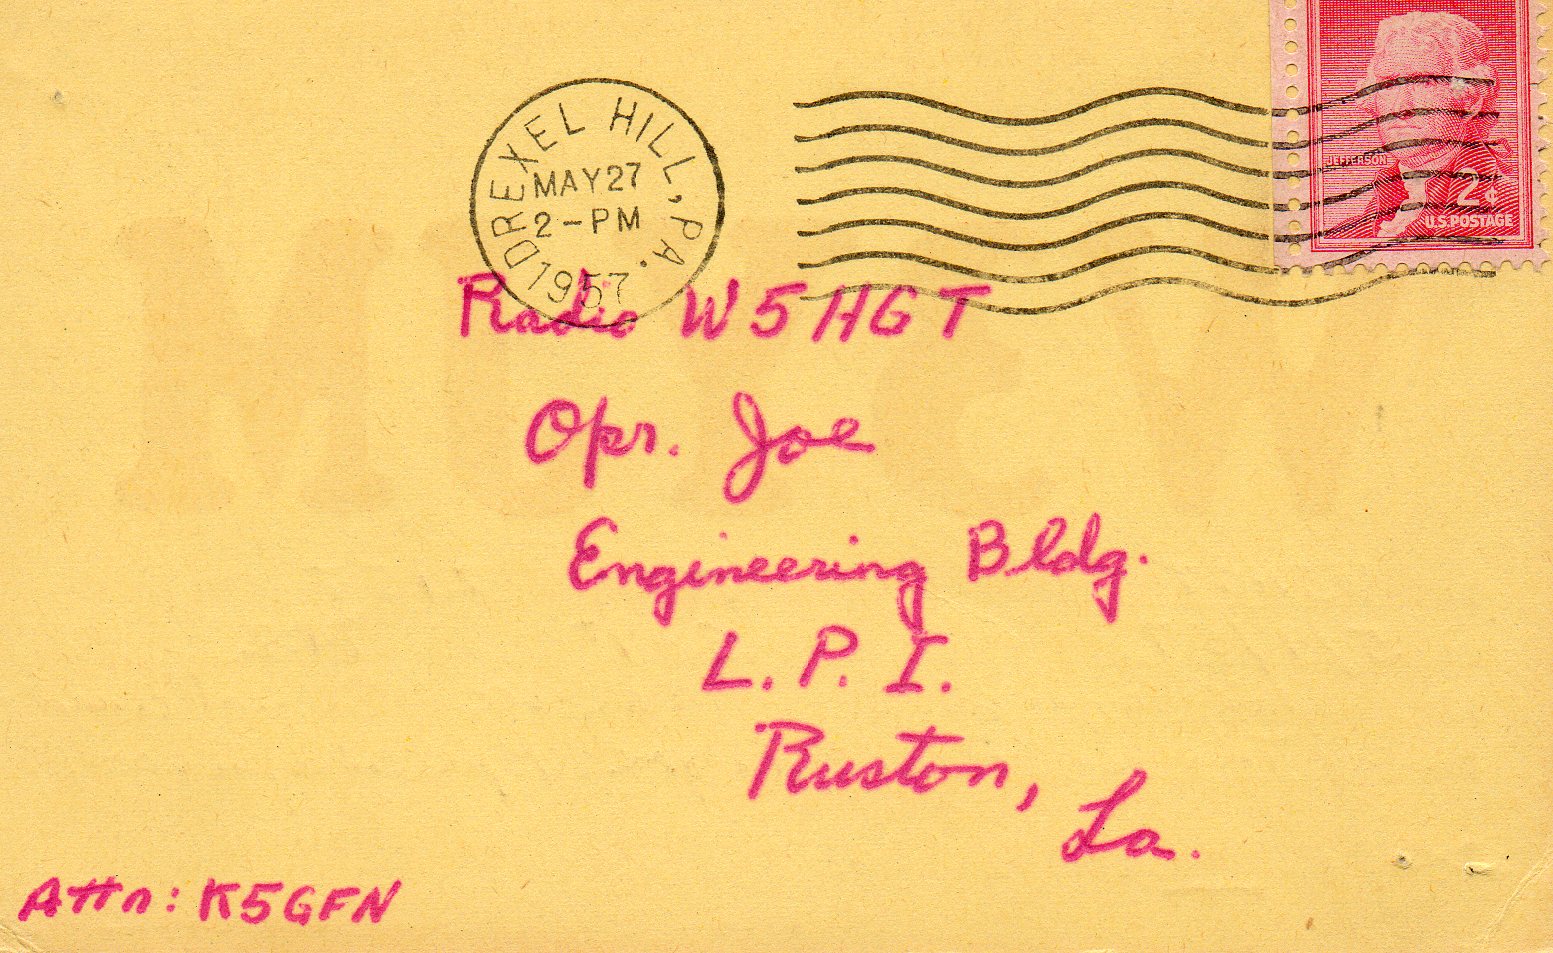 DREXEL HILL, PA.
MAY 27
2-PM
1957
JEFFERSON
2¢
U.S. POSTAGE
Radio W5HGT
Opr. Joe
Engineering Bldg.
L. P. I.
Ruston, La.
Attn: K5GFN